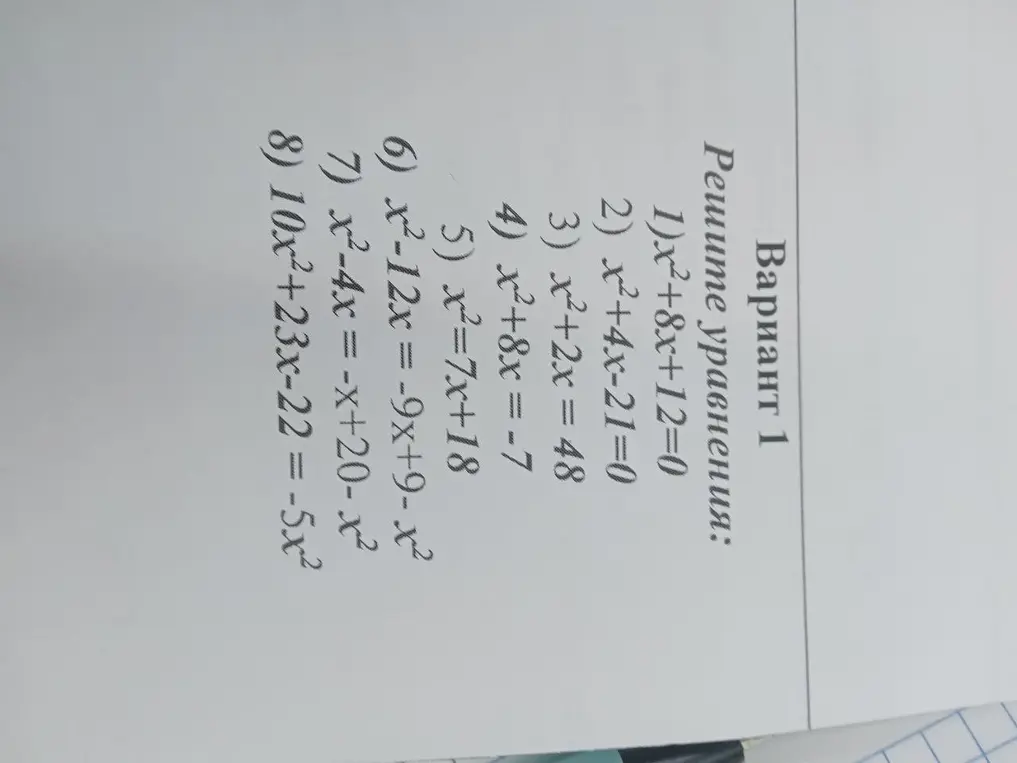 Вариант 1
Решите уравнения:
1)x²+8x+12=0
2) x²+4x-21=0
3) x²+2x = 48
4) x²+8x = -7
5) x²=7x+18
6) x²-12x = -9x+9- x²
7) x²-4x = -x+20- x²
8) 10x²+23x-22 = -5x²